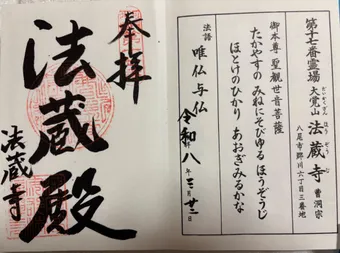 第十七番霊場
だいかくざん ほう ぞう じ
大覚山 法蔵寺 曹洞宗
八尾市郡川六丁目三番地
御本尊 聖観世音菩薩
たかやすの みねにそびゆる ほうぞうじ
ほとけのひかり あおぎみるかな
法語 唯仏与仏
令和八年三月廿二日
奉拝
法蔵殿
法蔵寺